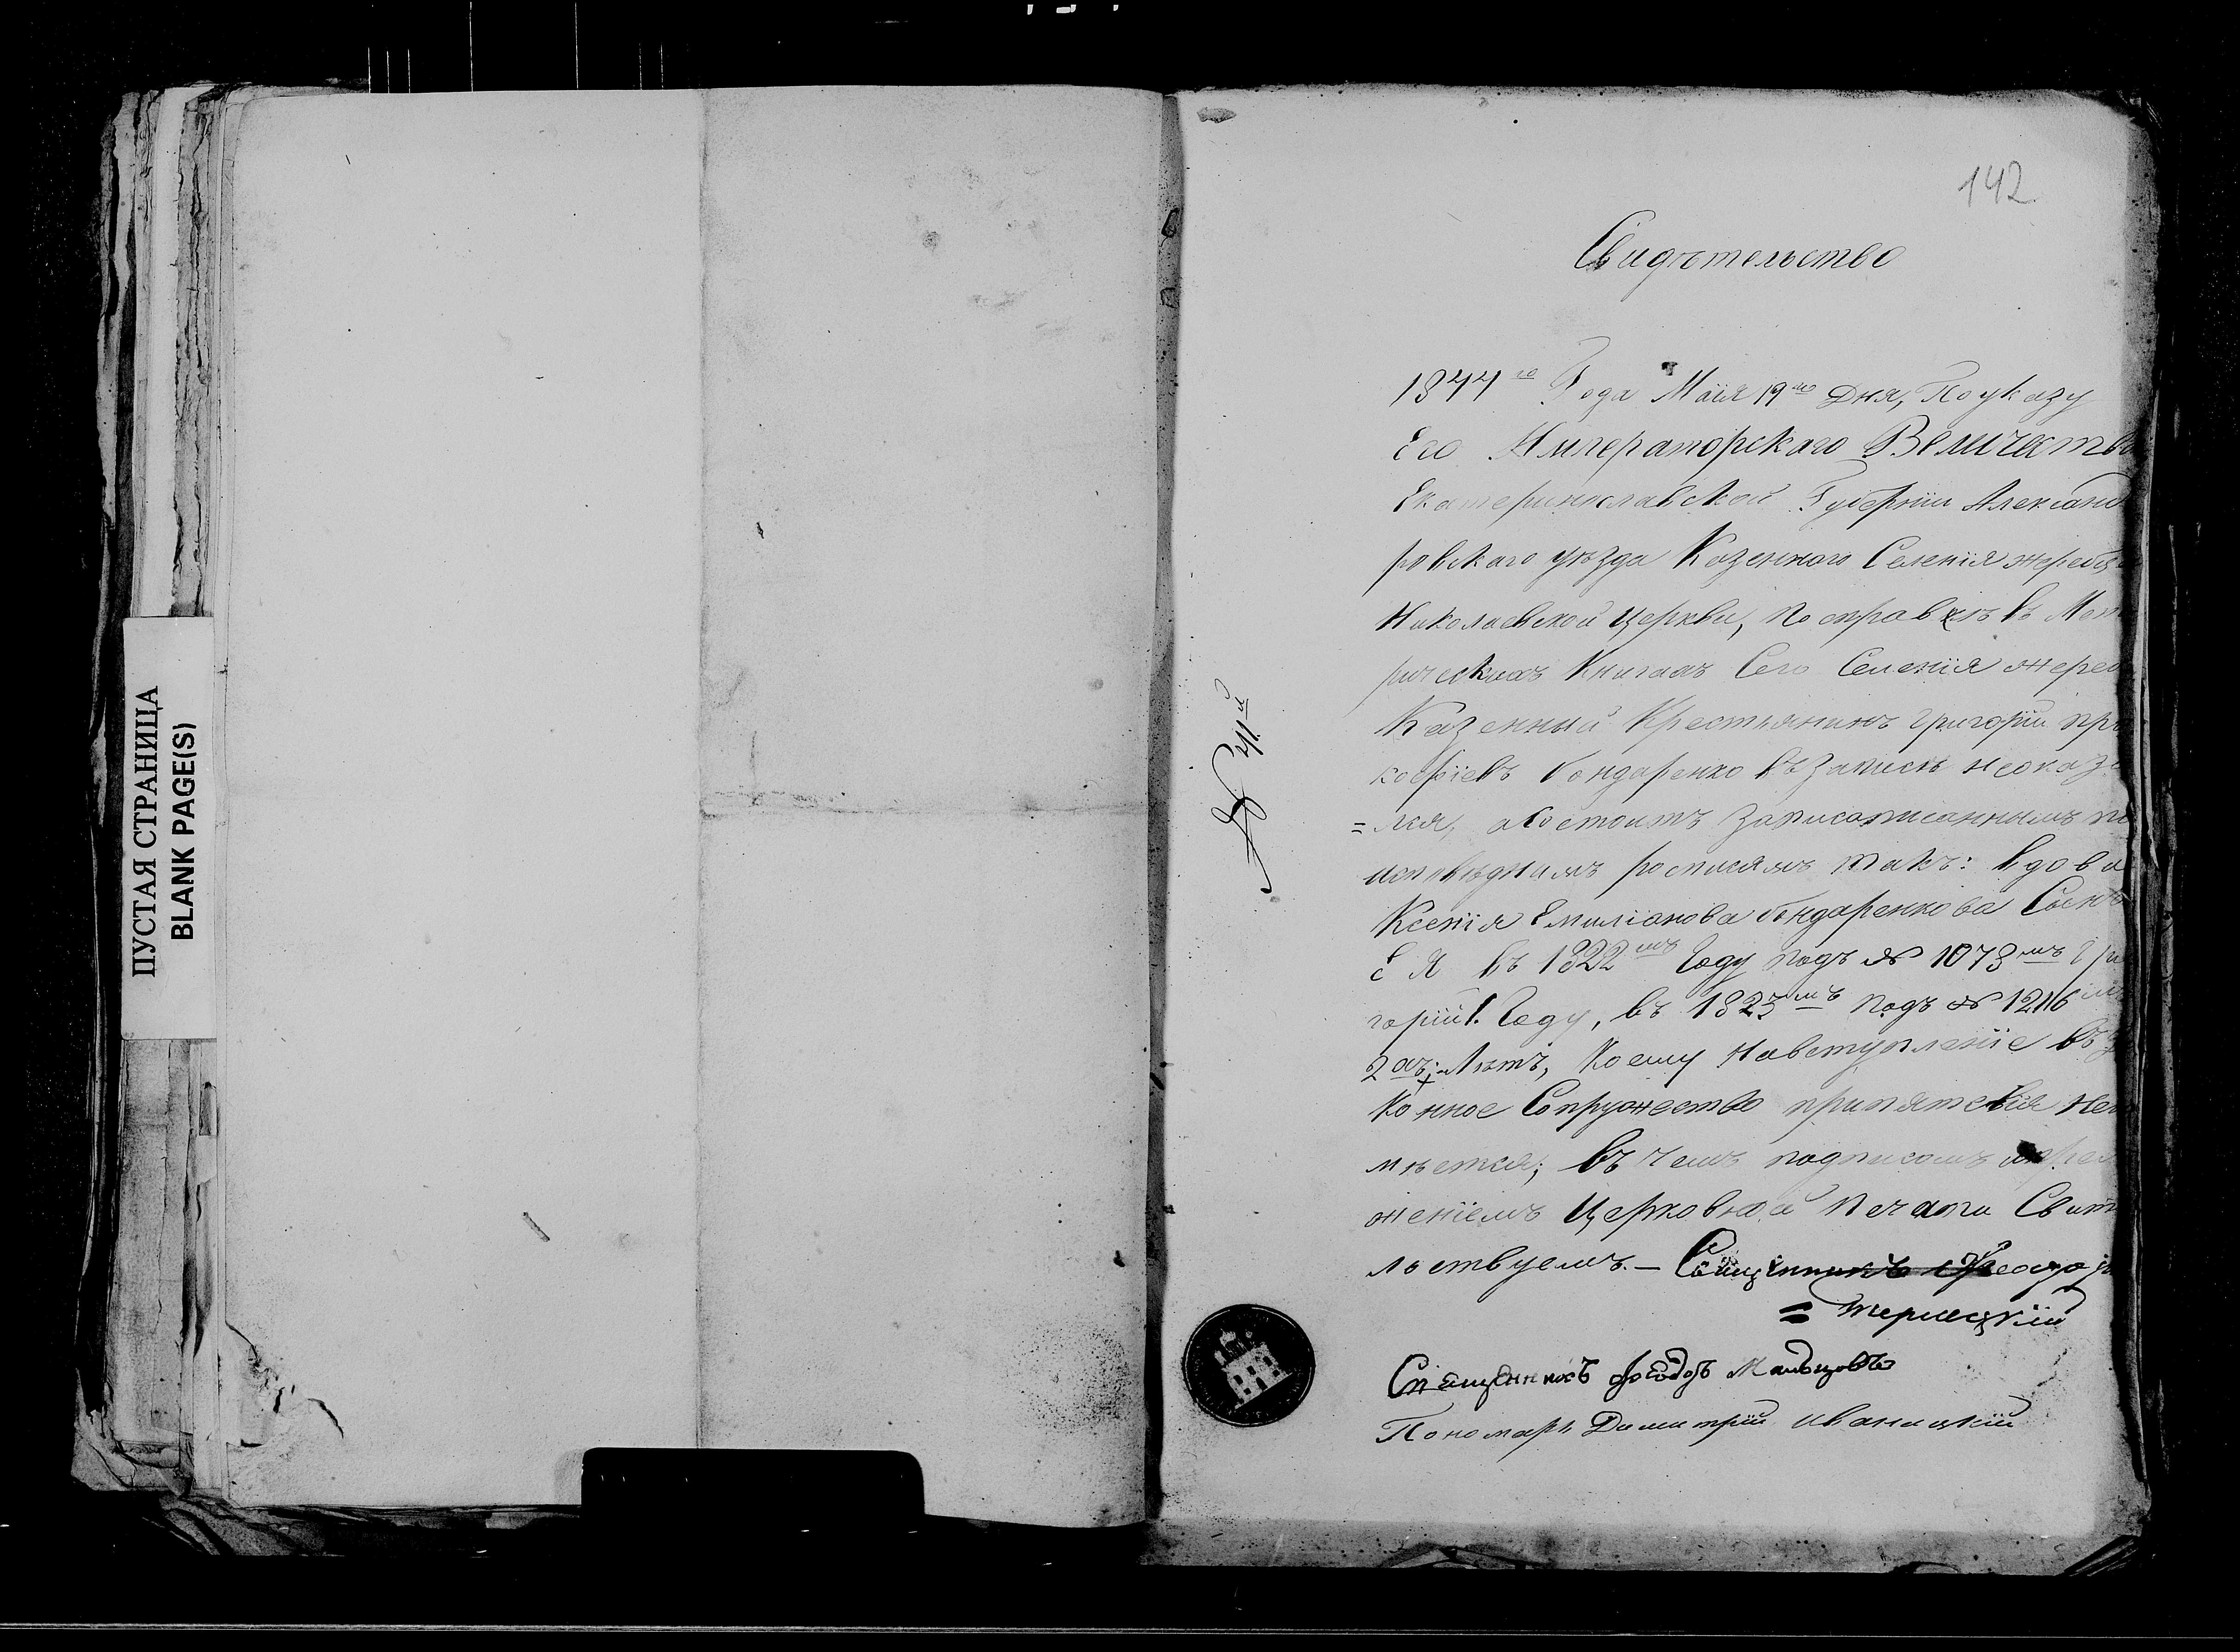 ПУСТАЯ СТРАНИЦА
BLANK PAGE(S)
142
Свидѣтельство
1844го Года Маія 19го Дня, По указу
Его Императорскаго Величества
Екатеринославской Губерніи Александ
ровскаго уѣзда Казеннаго Селенія жеребц
Николаевской Церкви, По справкѣ въ Мет
рическихъ Книгахъ Сего Селенія жере
Казенный Крестьянинъ Григорій Про
кофіевъ бондаренко въ записѣ неоказа
=лся, а Состоитъ записаписаннымъ по
исповѣднимъ росписямъ такъ: вдова
Ксенія Емиліанова бондаренкова Сынъ
ЕЯ въ 1822мъ Году подъ № 1073мъ Гри
горій 1. Году, въ 1823мъ подъ № 1216мъ
2ахъ Лѣтъ, Коему Навступленіе въ за
конное Сопружество припятствія неи
мѣется; въ чемъ подписомъ
женіемъ Церковной Печати Свит
льствуемъ.— Священникъ Феодоръ
= терлецкій
Священникъ Феодоръ Мальцовъ
Пономарь Димитрій Иваницкій
№ 41.й